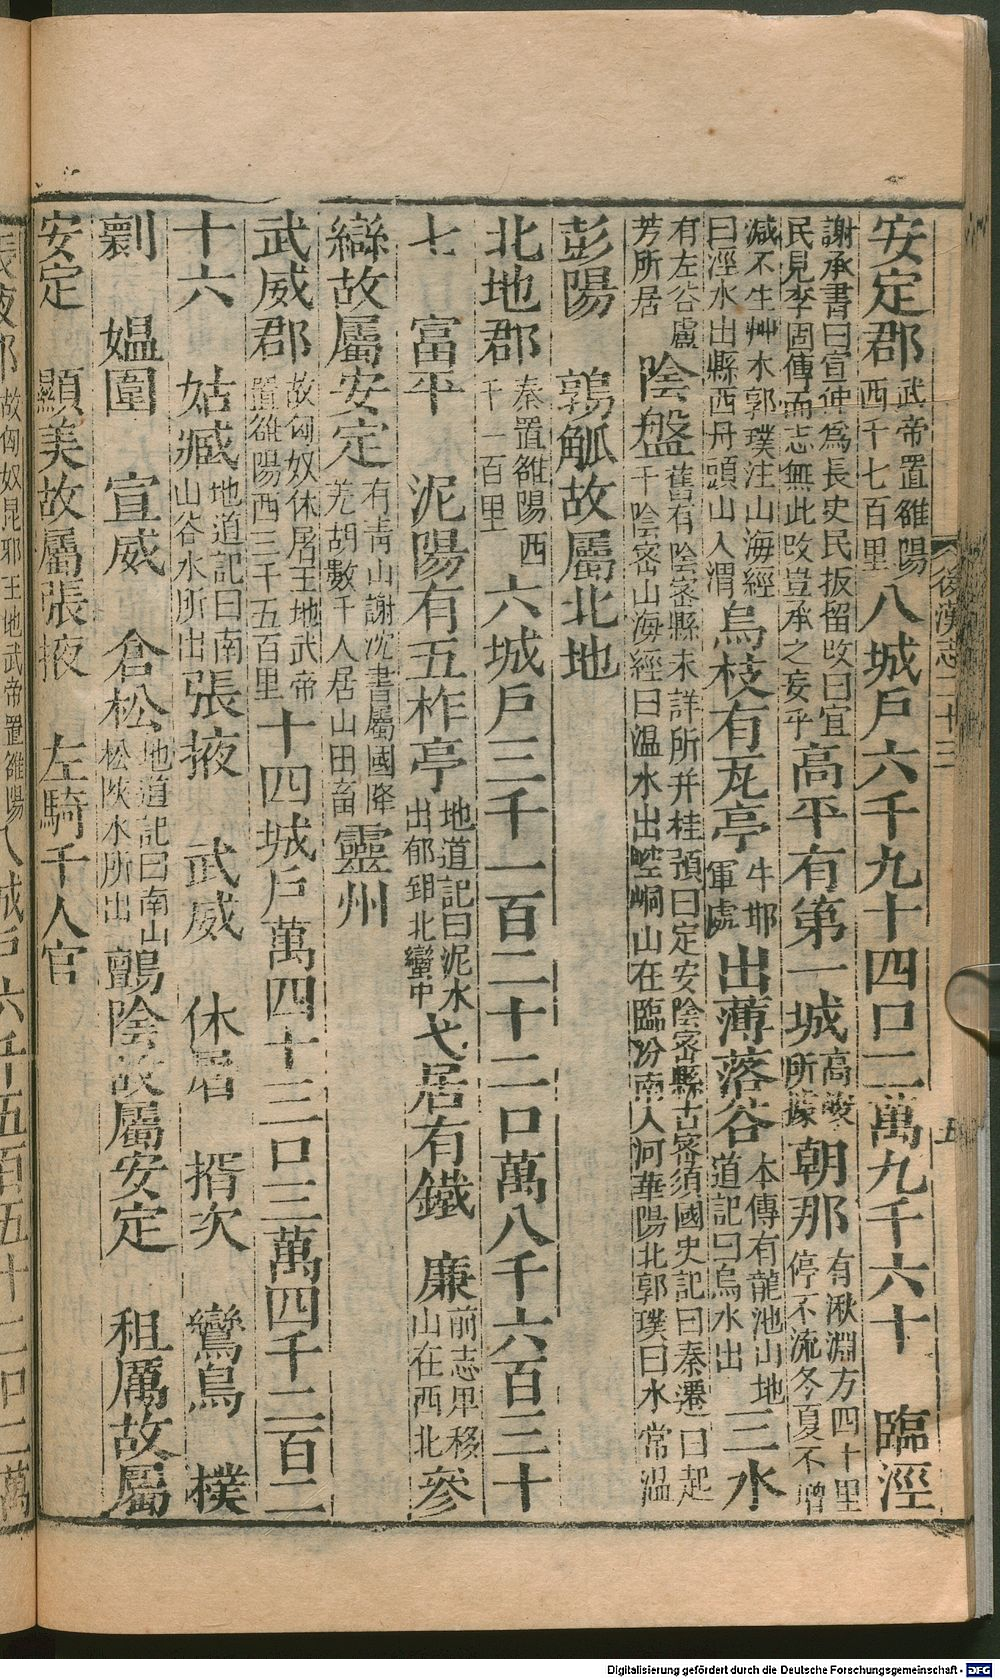 後漢志二十三
五
安定郡武帝置雒陽西千七百里八城戶六千九十四口二萬九千六十　臨涇
謝承書曰宣仲爲長史民扳留改曰宜民見李固傳而志無此改豈承之妄乎高平有第一城高峻所據朝那有湫淵方四十里停不流冬夏不增
減不生艸木郭璞注山海經曰涇水出縣西丹頭山入渭烏枝有瓦亭牛邯軍處出薄落谷本傳有龍池山地道記曰烏水出三水
有左谷盧芳所居陰盤舊有陰密縣未詳所并桂預曰定安陰密縣古密須國史記曰秦遷白起于陰密山海經曰温水出崆峒山在臨汾南入河華陽北郭璞曰水常温
彭陽　鶉觚故屬北地
北地郡秦置雒陽西千一百里六城戶三千一百二十二口萬八千六百三十
七　富平　泥陽有五柞亭地道記曰泥水出郁郅北蠻中弋居有鐵　廉前志卑移山在西北參
䜌故屬安定有青山謝沈書屬國降羌胡數千人居山田畜靈州
武威郡故匈奴休屠王地武帝置雒陽西三千五百里十四城戶萬四十三口三萬四千二百二
十六　姑臧地道記曰南山谷水所出張掖　武威　休屠　揟次　鸞鳥　樸
劅　媼圍　宣威　倉松地道記曰南山松陜水所出鸇陰故屬安定　租厲故屬
安定　顯美故屬張掖　左騎千人官
張掖郡故匈奴昆邪王地武帝置雒陽八城戶六千五百五十二口二萬
Digitalisierung gefördert durch die Deutsche Forschungsgemeinschaft - DFG